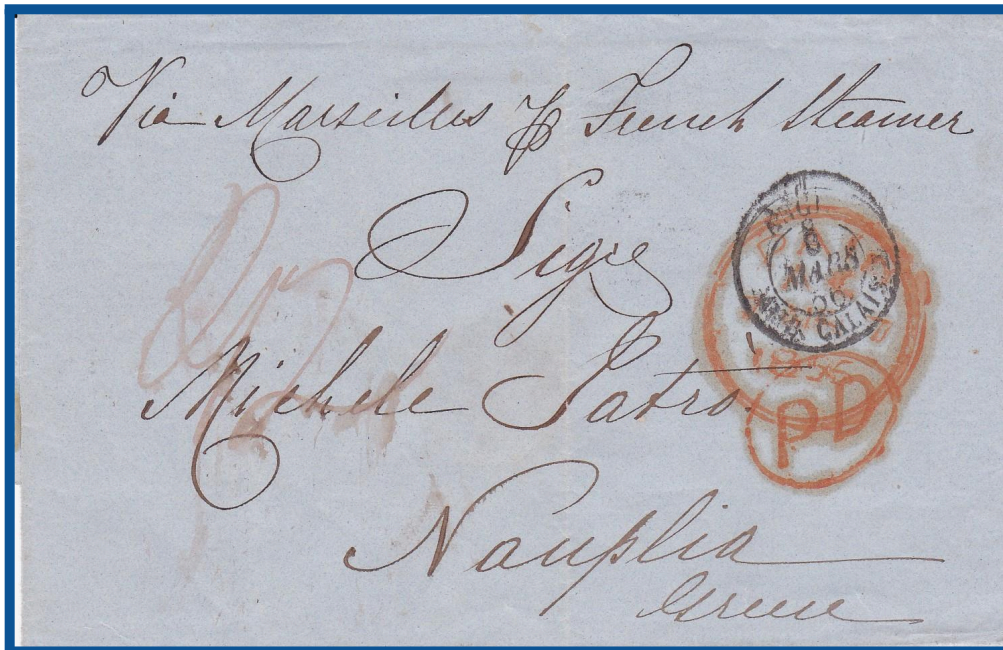 Via Marseilles p French Steamer
Sigre
Michele Iatro.
Nauplia
Greece
8
MARS
56
AMB. CALAIS
PD